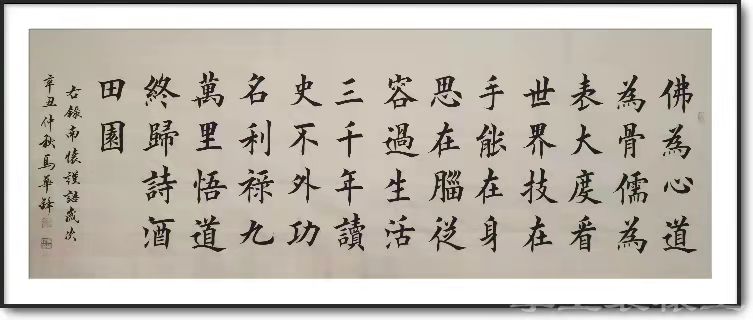 佛為心道
為骨儒為
表大度看
世界技在
手能在身
思在腦從
容過生活
三千年讀
史不外功
名利祿九
萬里悟道
終歸詩酒
田園
右錄南懷謹語歲次
辛丑仲秋馬華